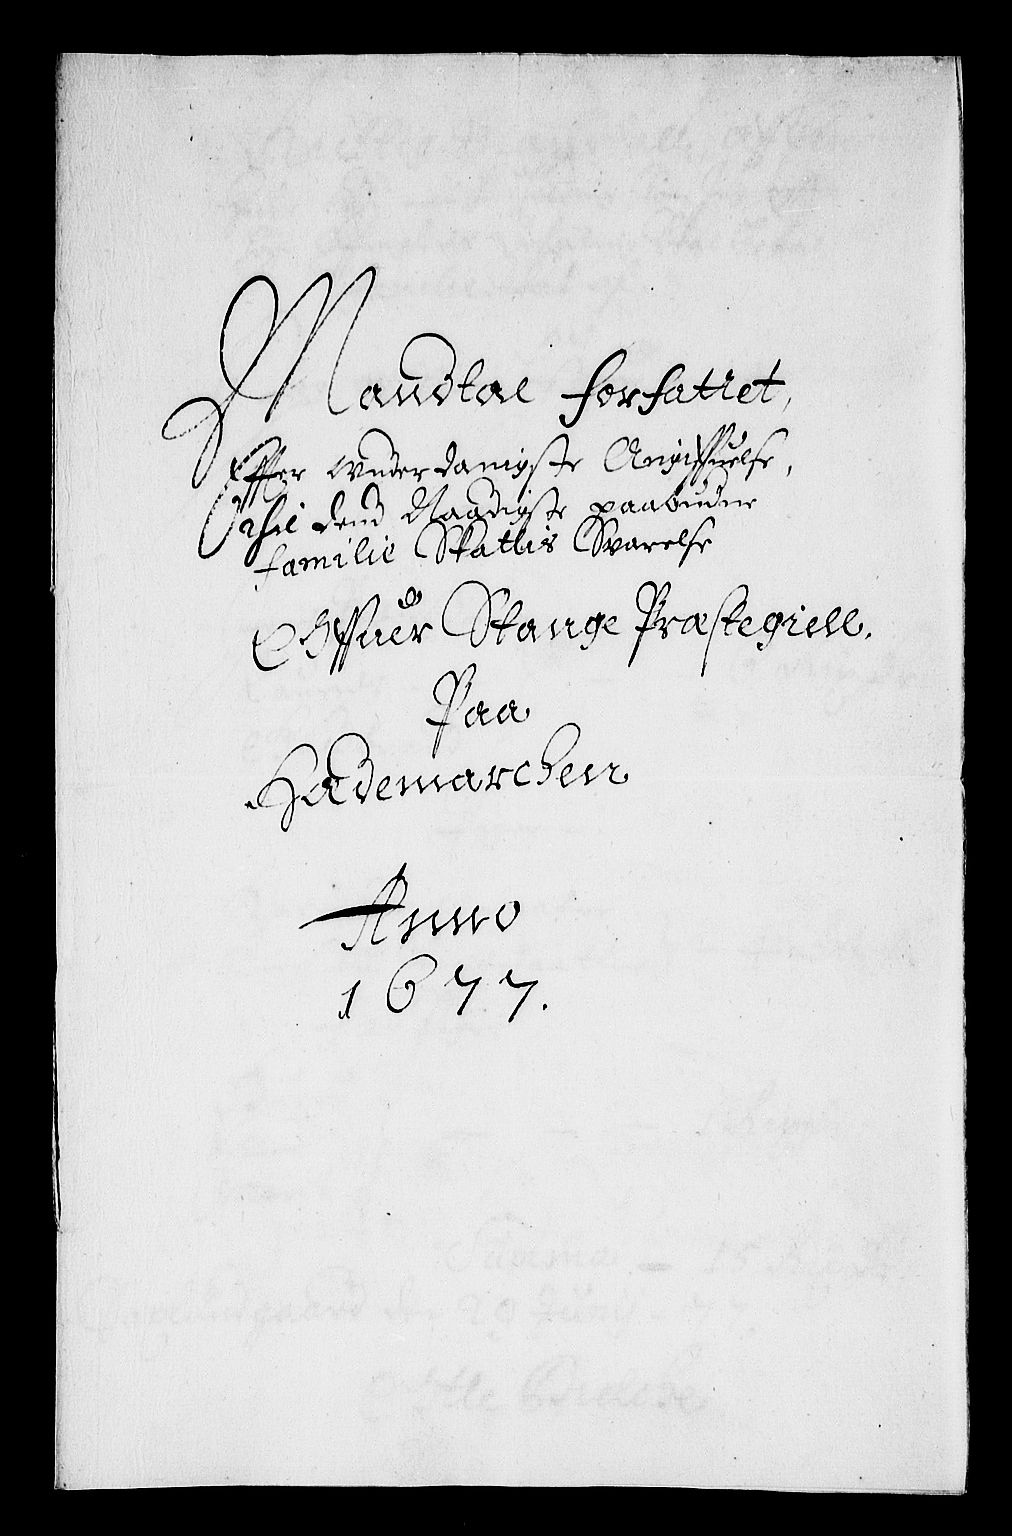 Mandtal forfattet,
Effter Underdanigste Angiffuelse,
Thil dend Naadigste paabudne
familie Skattis Svarelse
Offuer Stange Præstegield.
Paa
Hædemarchen
Anno
1677.